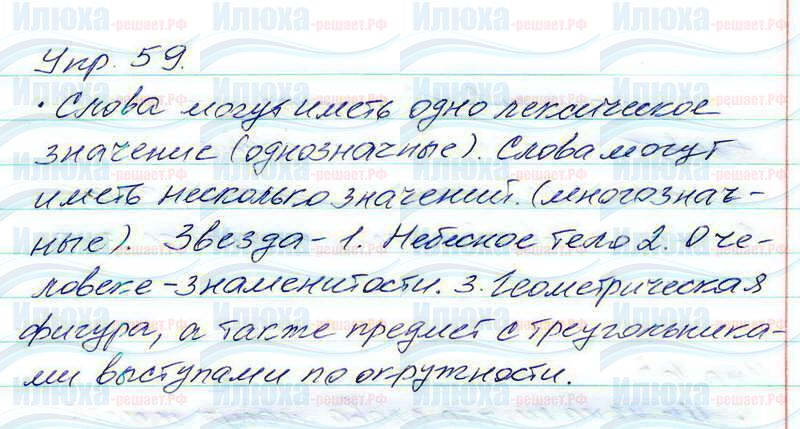 Упр. 59.
· Слова могут иметь одно лексическое
значение (однозначные). Слова могут
иметь несколько значений. (многознач-
ные). Звезда - 1. Небесное тело 2. О че-
ловеке - знаменитости. 3. Геометрическая
фигура, а также предмет с треугольника-
ми выступами по окружности.